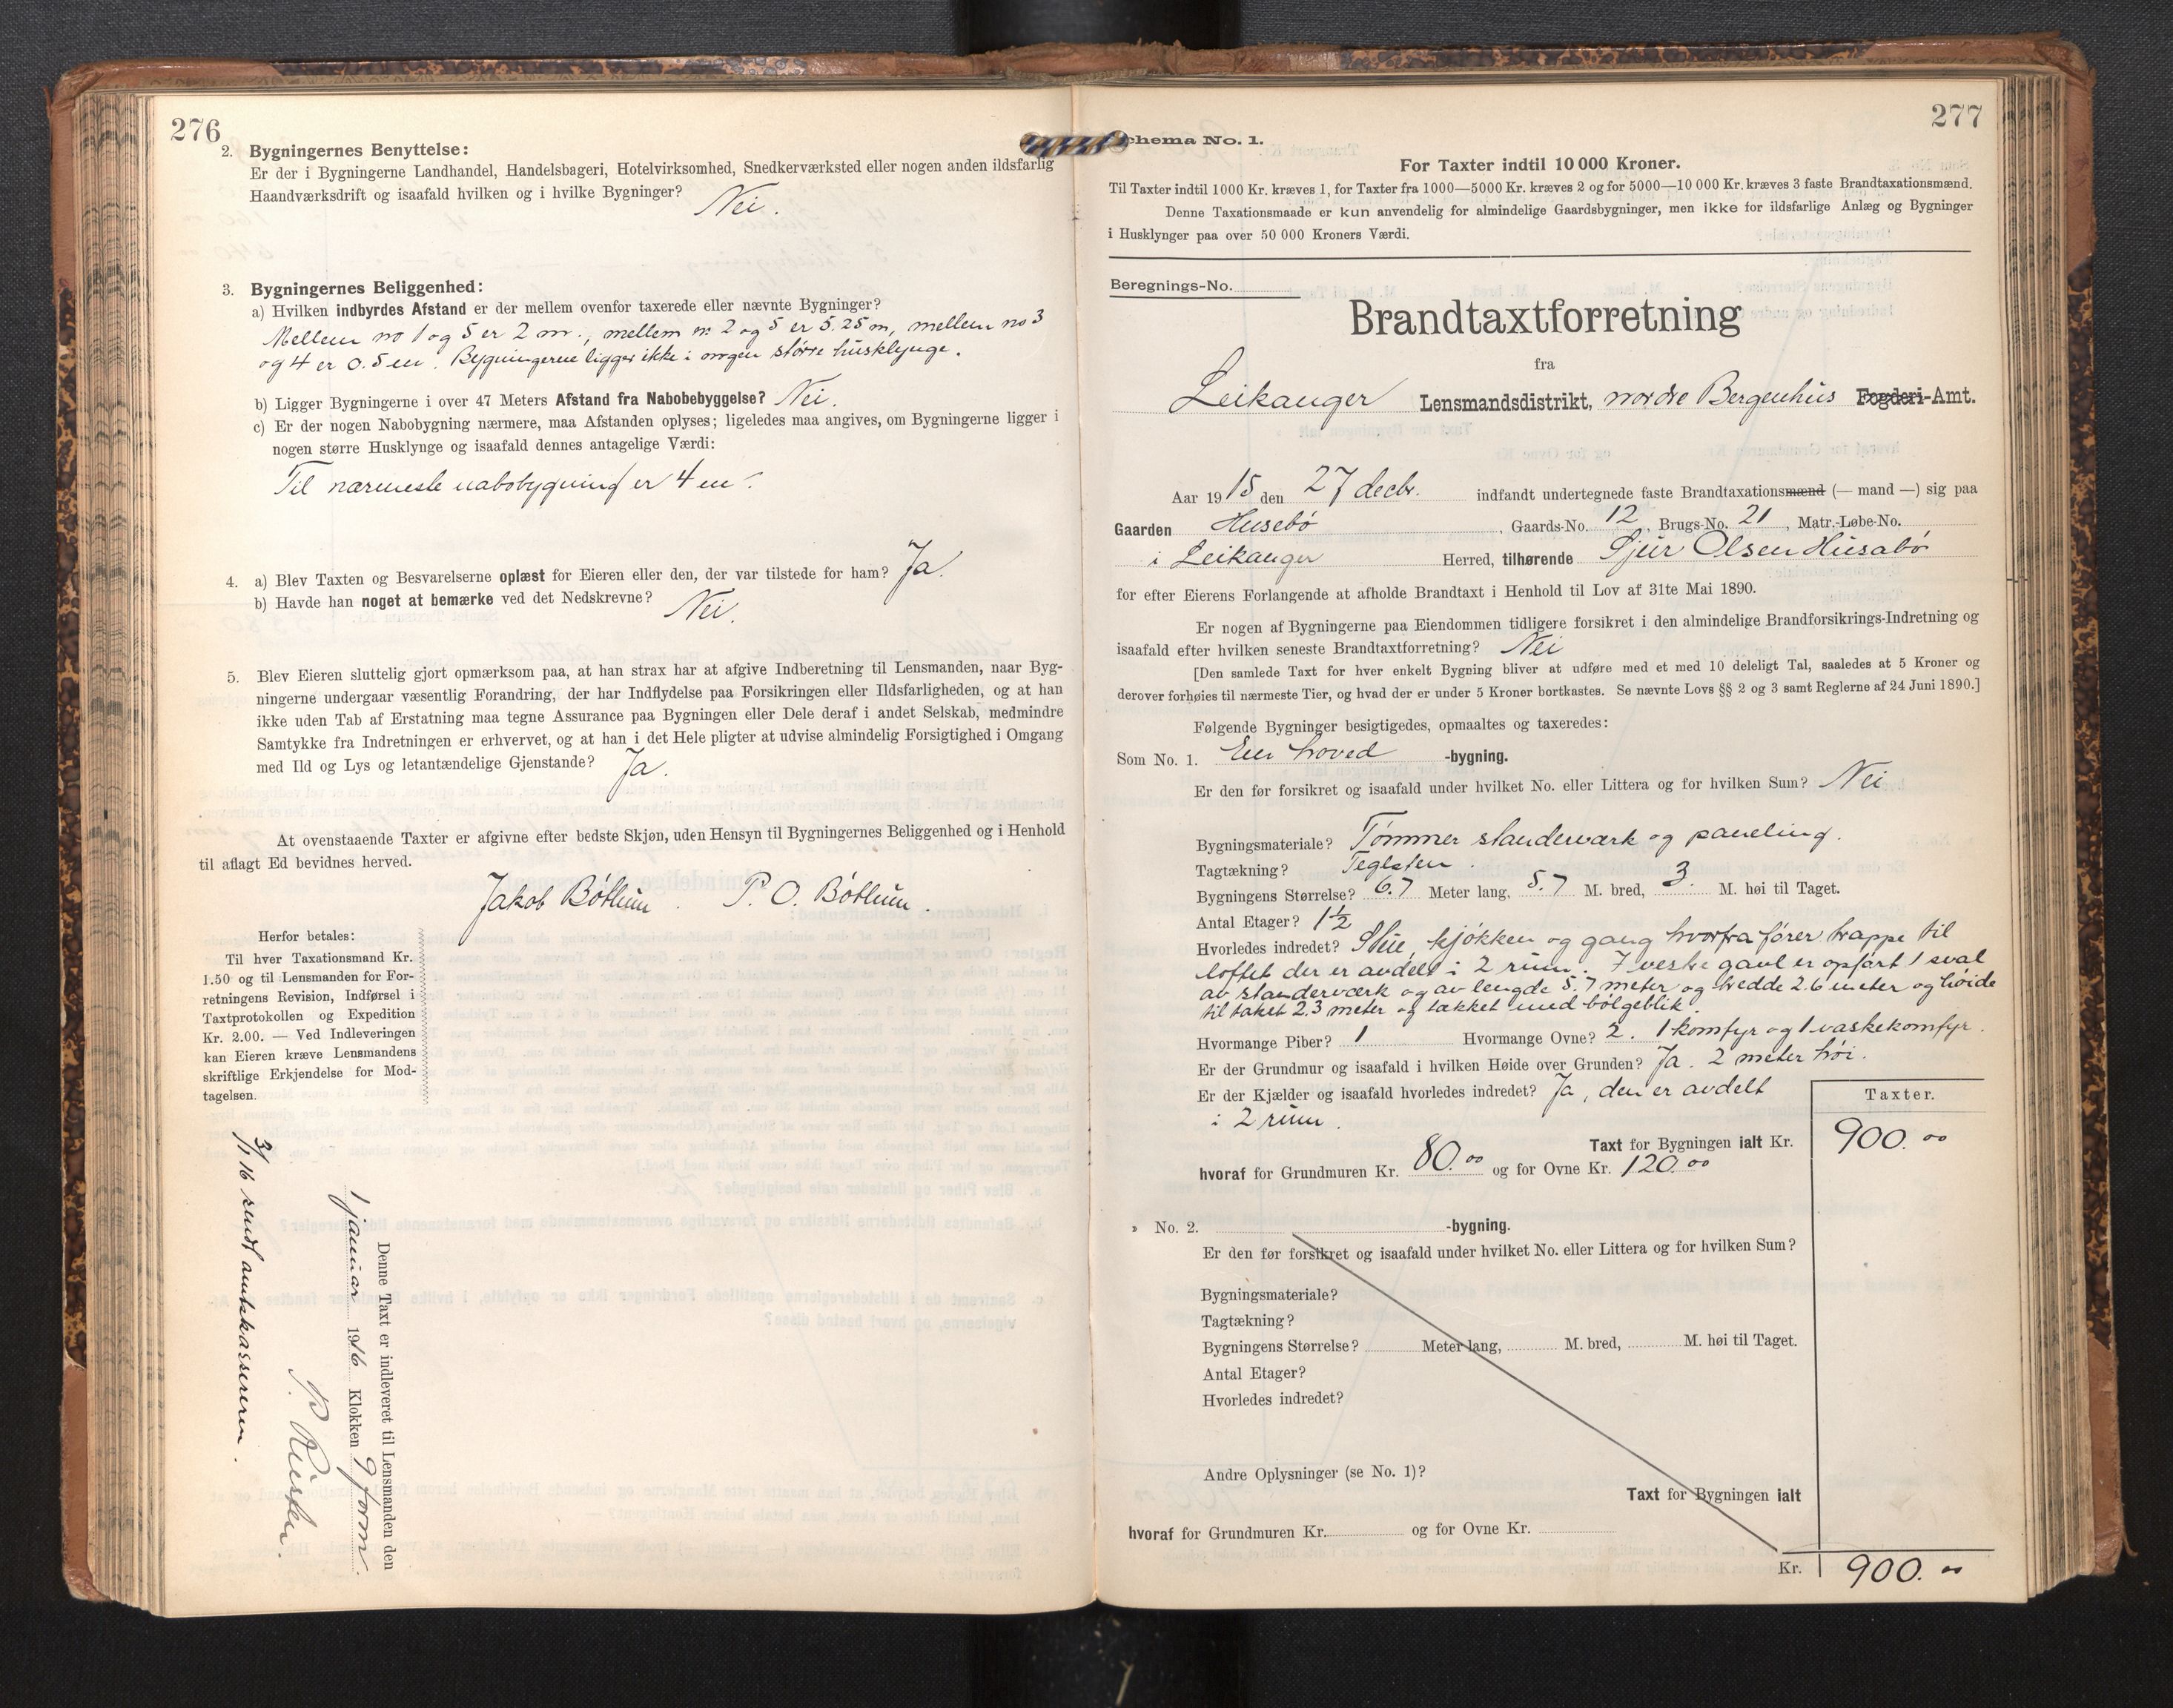 276
2. Bygningernes Benyttelse:
Er der i Bygningerne Landhandel, Handelsbageri, Hotelvirksomhed, Snedkerværksted eller nogen anden ildsfarlig
Haandværksdrift og isaafald hvilken og i hvilke Bygninger? Nei.
3. Bygningernes Beliggenhed:
a) Hvilken indbyrdes Afstand er der mellem ovenfor taxerede eller nævnte Bygninger?
Mellem no 1 og 5 er 2 m., mellem nr 2 og 5 er 5.25 m, mellem no 3
og 4 er 0.5 m. Bygningerne ligger ikke i nogen større husklynge.
b) Ligger Bygningerne i over 47 Meters Afstand fra Nabobebyggelse? Nei.
c) Er der nogen Nabobygning nærmere, maa Afstanden oplyses; ligeledes maa angives, om Bygningerne ligger i
nogen større Husklynge og isaafald dennes antagelige Værdi:
Til nærmeste nabobygning er 4 m.
4. a) Blev Taxten og Besvarelserne oplæst for Eieren eller den, der var tilstede for ham? Ja.
b) Havde han noget at bemærke ved det Nedskrevne? Nei.
5. Blev Eieren sluttelig gjort opmærksom paa, at han strax har at afgive Indberetning til Lensmanden, naar Byg-
ningerne undergaar væsentlig Forandring, der har Indflydelse paa Forsikringen eller Ildsfarligheden, og at han
ikke uden Tab af Erstatning maa tegne Assurance paa Bygningen eller Dele deraf i andet Selskab, medmindre
Samtykke fra Indretningen er erhvervet, og at han i det Hele pligter at udvise almindelig Forsigtighed i Omgang
med Ild og Lys og letantændelige Gjenstande? Ja.
At ovenstaaende Taxter er afgivne efter bedste Skjøn, uden Hensyn til Bygningernes Beliggenhed og i Henhold
til aflagt Ed bevidnes herved.
Jakob Bøthun. P. O. Bøthun.
Herfor betales:
Til hver Taxationsmand Kr.
1.50 og til Lensmanden for For-
retningens Revision, Indførsel i
Taxtprotokollen og Expedition
Kr. 2.00. — Ved Indleveringen
kan Eieren kræve Lensmandens
skriftlige Erkjendelse for Mod-
tagelsen.
Denne Taxt er indleveret til Lensmanden den
1 januar 1916 Klokken 9 form.
3/1 16 sendt amtskassereren.
277
chema No. 1.
For Taxter indtil 10 000 Kroner.
Til Taxter indtil 1000 Kr. kræves 1, for Taxter fra 1000—5000 Kr. kræves 2 og for 5000—10 000 Kr. kræves 3 faste Brandtaxationsmænd.
Denne Taxationsmaade er kun anvendelig for almindelige Gaardsbygninger, men ikke for ildsfarlige Anlæg og Bygninger
i Husklynger paa over 50 000 Kroners Værdi.
Beregnings-No.
Brandtaxtforretning
fra
Leikanger Lensmandsdistrikt, nordre Bergenhus Fogderi-Amt.
Aar 1915 den 27 decbr. indfandt undertegnede faste Brandtaxationsmænd (— mand —) sig paa
Gaarden Husebø, Gaards-No. 12, Brugs-No. 21, Matr.-Løbe-No.
i Leikanger Herred, tilhørende Sjur Olsen Husabø
for efter Eierens Forlangende at afholde Brandtaxt i Henhold til Lov af 31te Mai 1890.
Er nogen af Bygningerne paa Eiendommen tidligere forsikret i den almindelige Brandforsikrings-Indretning og
isaafald efter hvilken seneste Brandtaxtforretning? Nei
[Den samlede Taxt for hver enkelt Bygning bliver at udføre med et med 10 deleligt Tal, saaledes at 5 Kroner og
derover forhøies til nærmeste Tier, og hvad der er under 5 Kroner bortkastes. Se nævnte Lovs §§ 2 og 3 samt Reglerne af 24 Juni 1890.]
Følgende Bygninger besigtigedes, opmaaltes og taxeredes:
Som No. 1. En hoved -bygning.
Er den før forsikret og isaafald under hvilket No. eller Littera og for hvilken Sum? Nei
Bygningsmateriale? Tømmer standerværk og paneling.
Tagtækning? Teglsten.
Bygningens Størrelse? 6.7 Meter lang, 5.7 M. bred, 3. M. høi til Taget.
Antal Etager? 1½
Hvorledes indredet? Stue, kjøkken og gang hvorfra fører trappe til
loftet der er avdelt i 2 rum. I vestre gavl er opført 1 sval
av standerværk og av lengde 5.7 meter og bredde 2.6 meter og høide
til taket 2.3 meter og tækket med bølgeblik.
Hvormange Piber? 1 Hvormange Ovne? 2. 1 komfyr og 1 vaskekomfyr.
Er der Grundmur og isaafald i hvilken Høide over Grunden? Ja. 2 meter høi.
Er der Kjælder og isaafald hvorledes indredet? Ja, den er avdelt
i 2 rum.
Taxter.
Taxt for Bygningen ialt Kr. 900.00
hvoraf for Grundmuren Kr. 80.00 og for Ovne Kr. 120.00
» No. 2. -bygning.
Er den før forsikret og isaafald under hvilket No. eller Littera og for hvilken Sum?
Bygningsmateriale?
Tagtækning?
Bygningens Størrelse? Meter lang, M. bred, M. høi til Taget.
Antal Etager?
Hvorledes indredet?
Andre Oplysninger (se No. 1)?
Taxt for Bygningen ialt
hvoraf for Grundmuren Kr. og for Ovne Kr.
Kr. 900.00